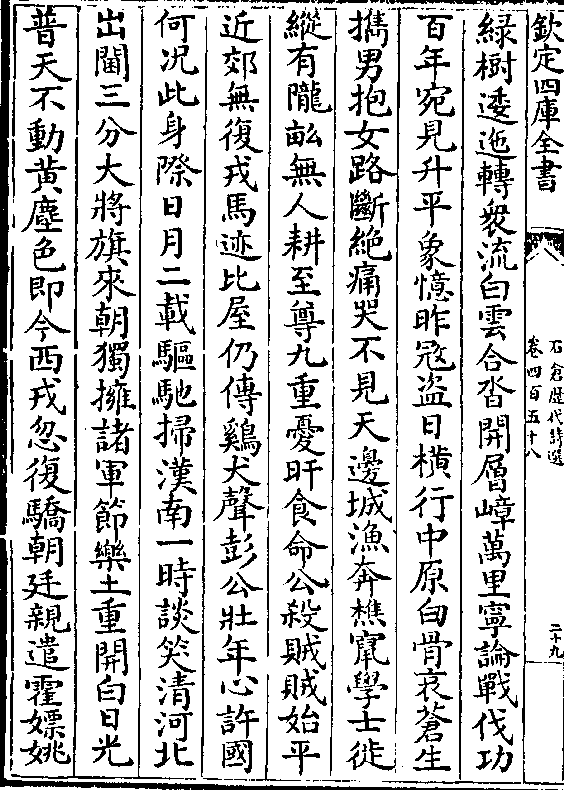 欽定四庫全書
石倉歷代詩選
卷四百五十八
二十九
緑樹逶迤轉衆流白雲合沓開層嶂萬里寧論戰伐功
百年宛見升平象憶昨冦盗日横行中原白骨哀蒼生
擕男抱女路斷絶痛哭不見天邊城漁奔樵竄學士徙
縱有隴畝無人耕至尊九重憂旰食命公殺賊賊始平
近郊無復戎馬迹比屋仍傳鷄犬聲彭公壯年心許國
何况此身際日月二載驅馳掃漢南一時談笑清河北
出閫三分大將旗來朝獨擁諸軍節樂土重開白日光
普天不動黄塵色即今西戎忽復驕朝廷親遣霍嫖姚